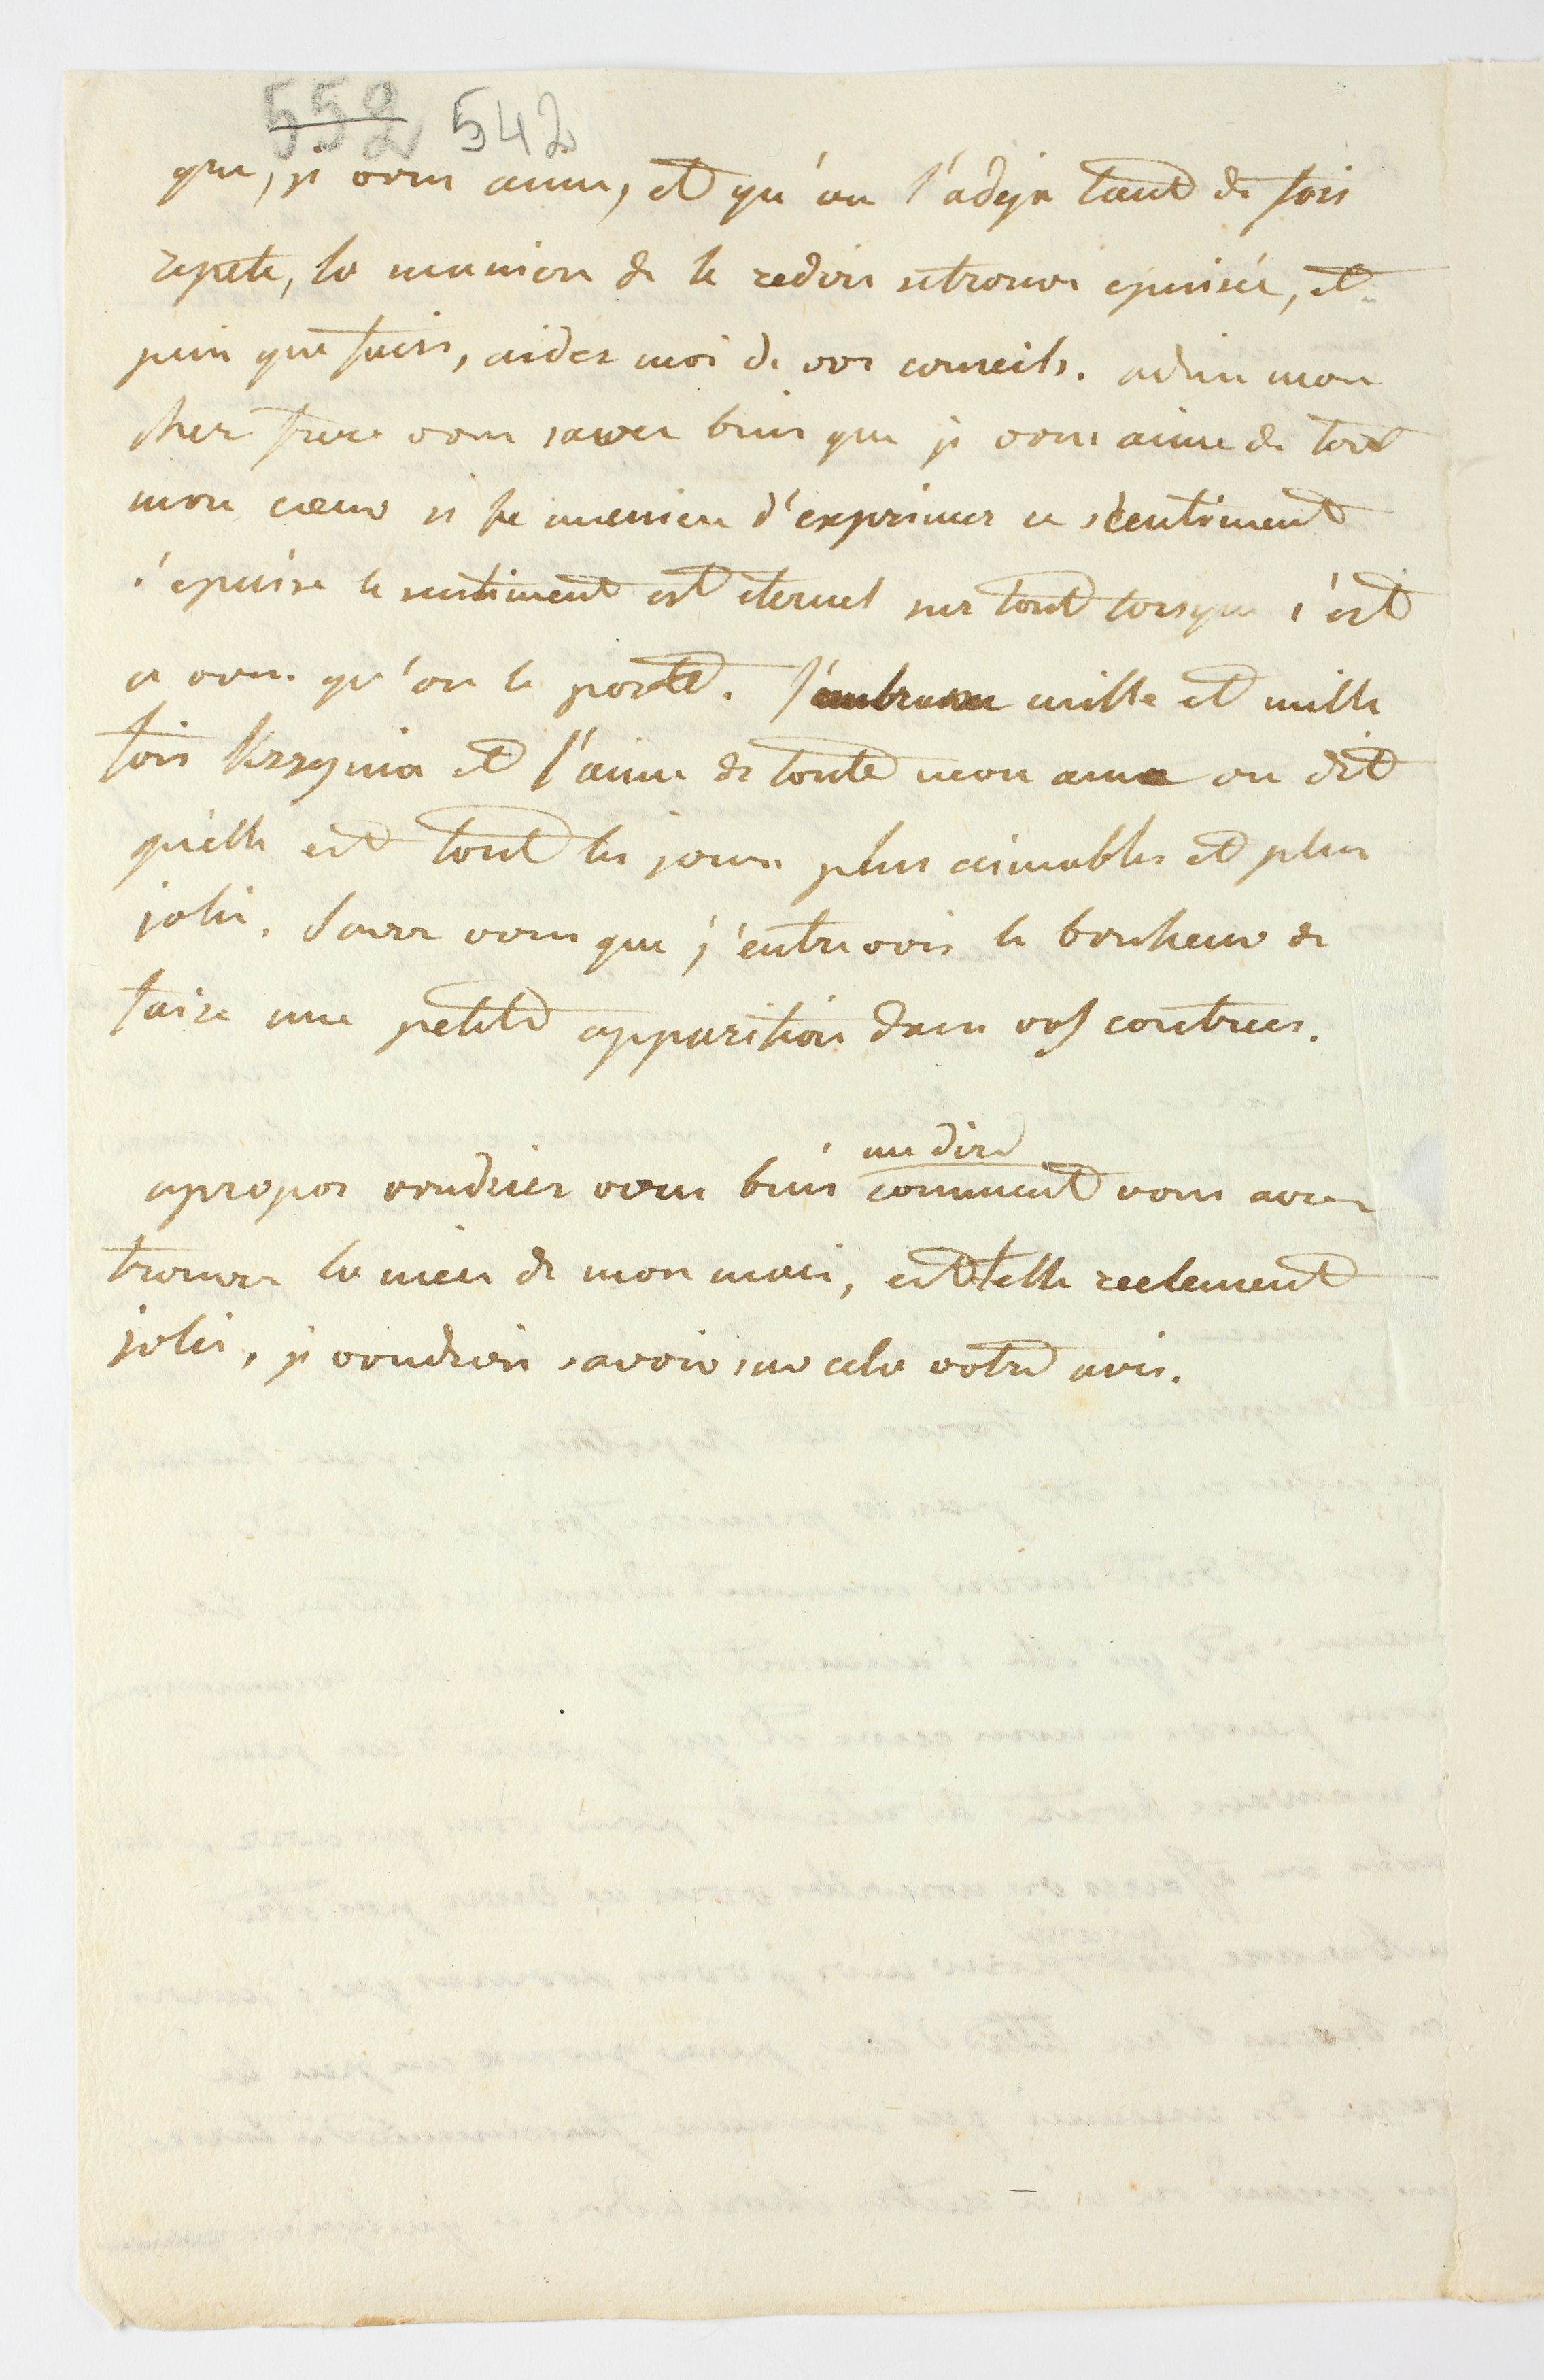 552 542
que, je vous aime, et qu'on l'a deja tant de fois
repete, la maniere de le redire se trouve epuisée, et
puis que faire, aidez moi de vos conseils. adieu mon
cher frere vous savez bien que je vous aime de tout
mon cœur si la maniere d'exprimer ce sentiment
s'epuise le sentiment est eternel sur tout lorsque c'est
a vous qu'on le porte. J'embrasse mille et mille
fois Krzysia et l'aime de toute mon ame on dit
qu'elle est tout les jours plus aimables et plus
jolie. Savez vous que j'entrevois le bonheur de
faire une petite apparition dans vos contrees.
me dire
apropos voudriez vous bien comment vous avez
trouvez la niece de mon mari, est elle reelement
jolie, je voudrois savoir sur cela votre avis.